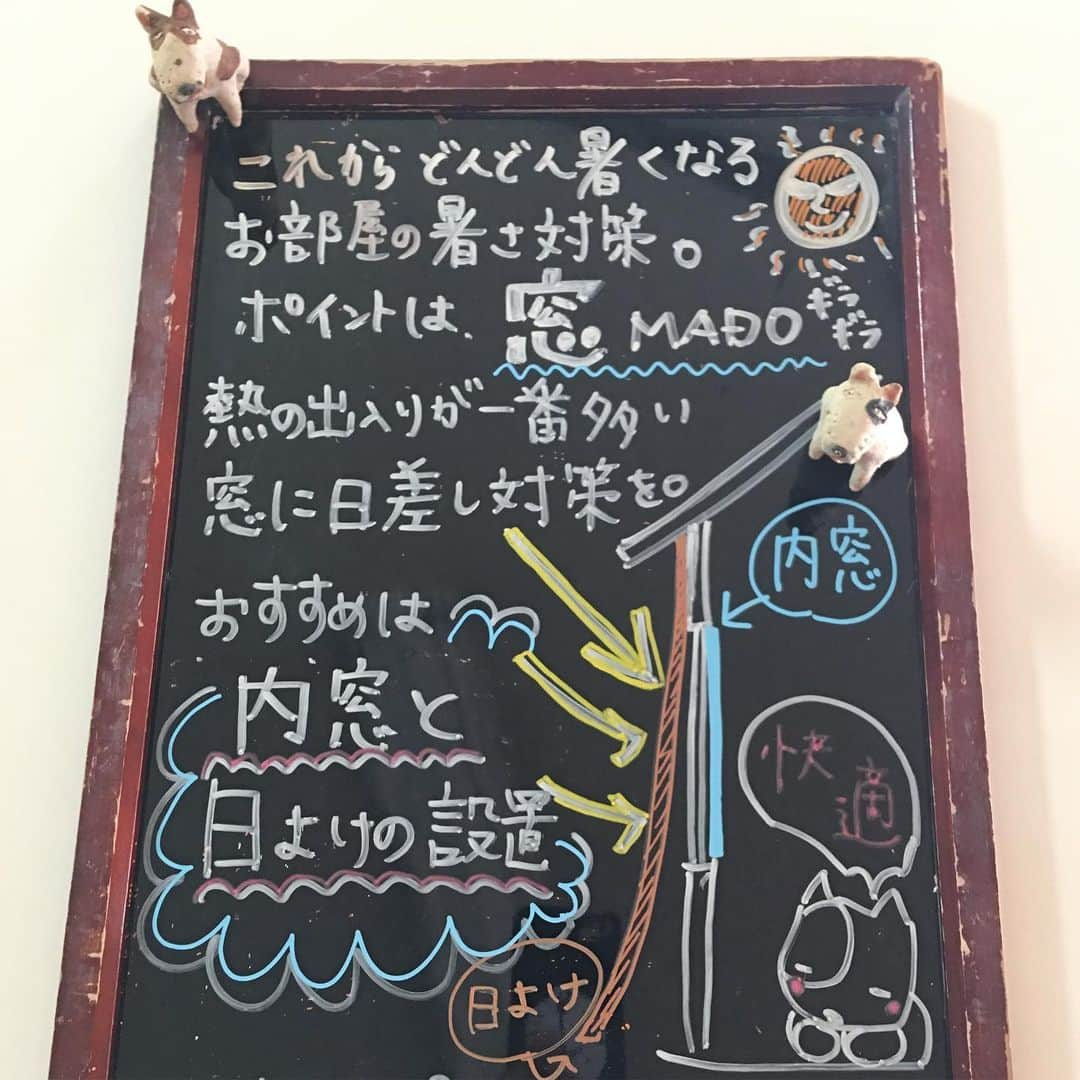 これからどんどん暑くなる
お部屋の暑さ対策。
ポイントは、窓 MADO
ギラギラ
熱の出入りが一番多い
窓に日差し対策を。
内窓
おすすめは
内窓と
日よけの設置
快適
日よけ